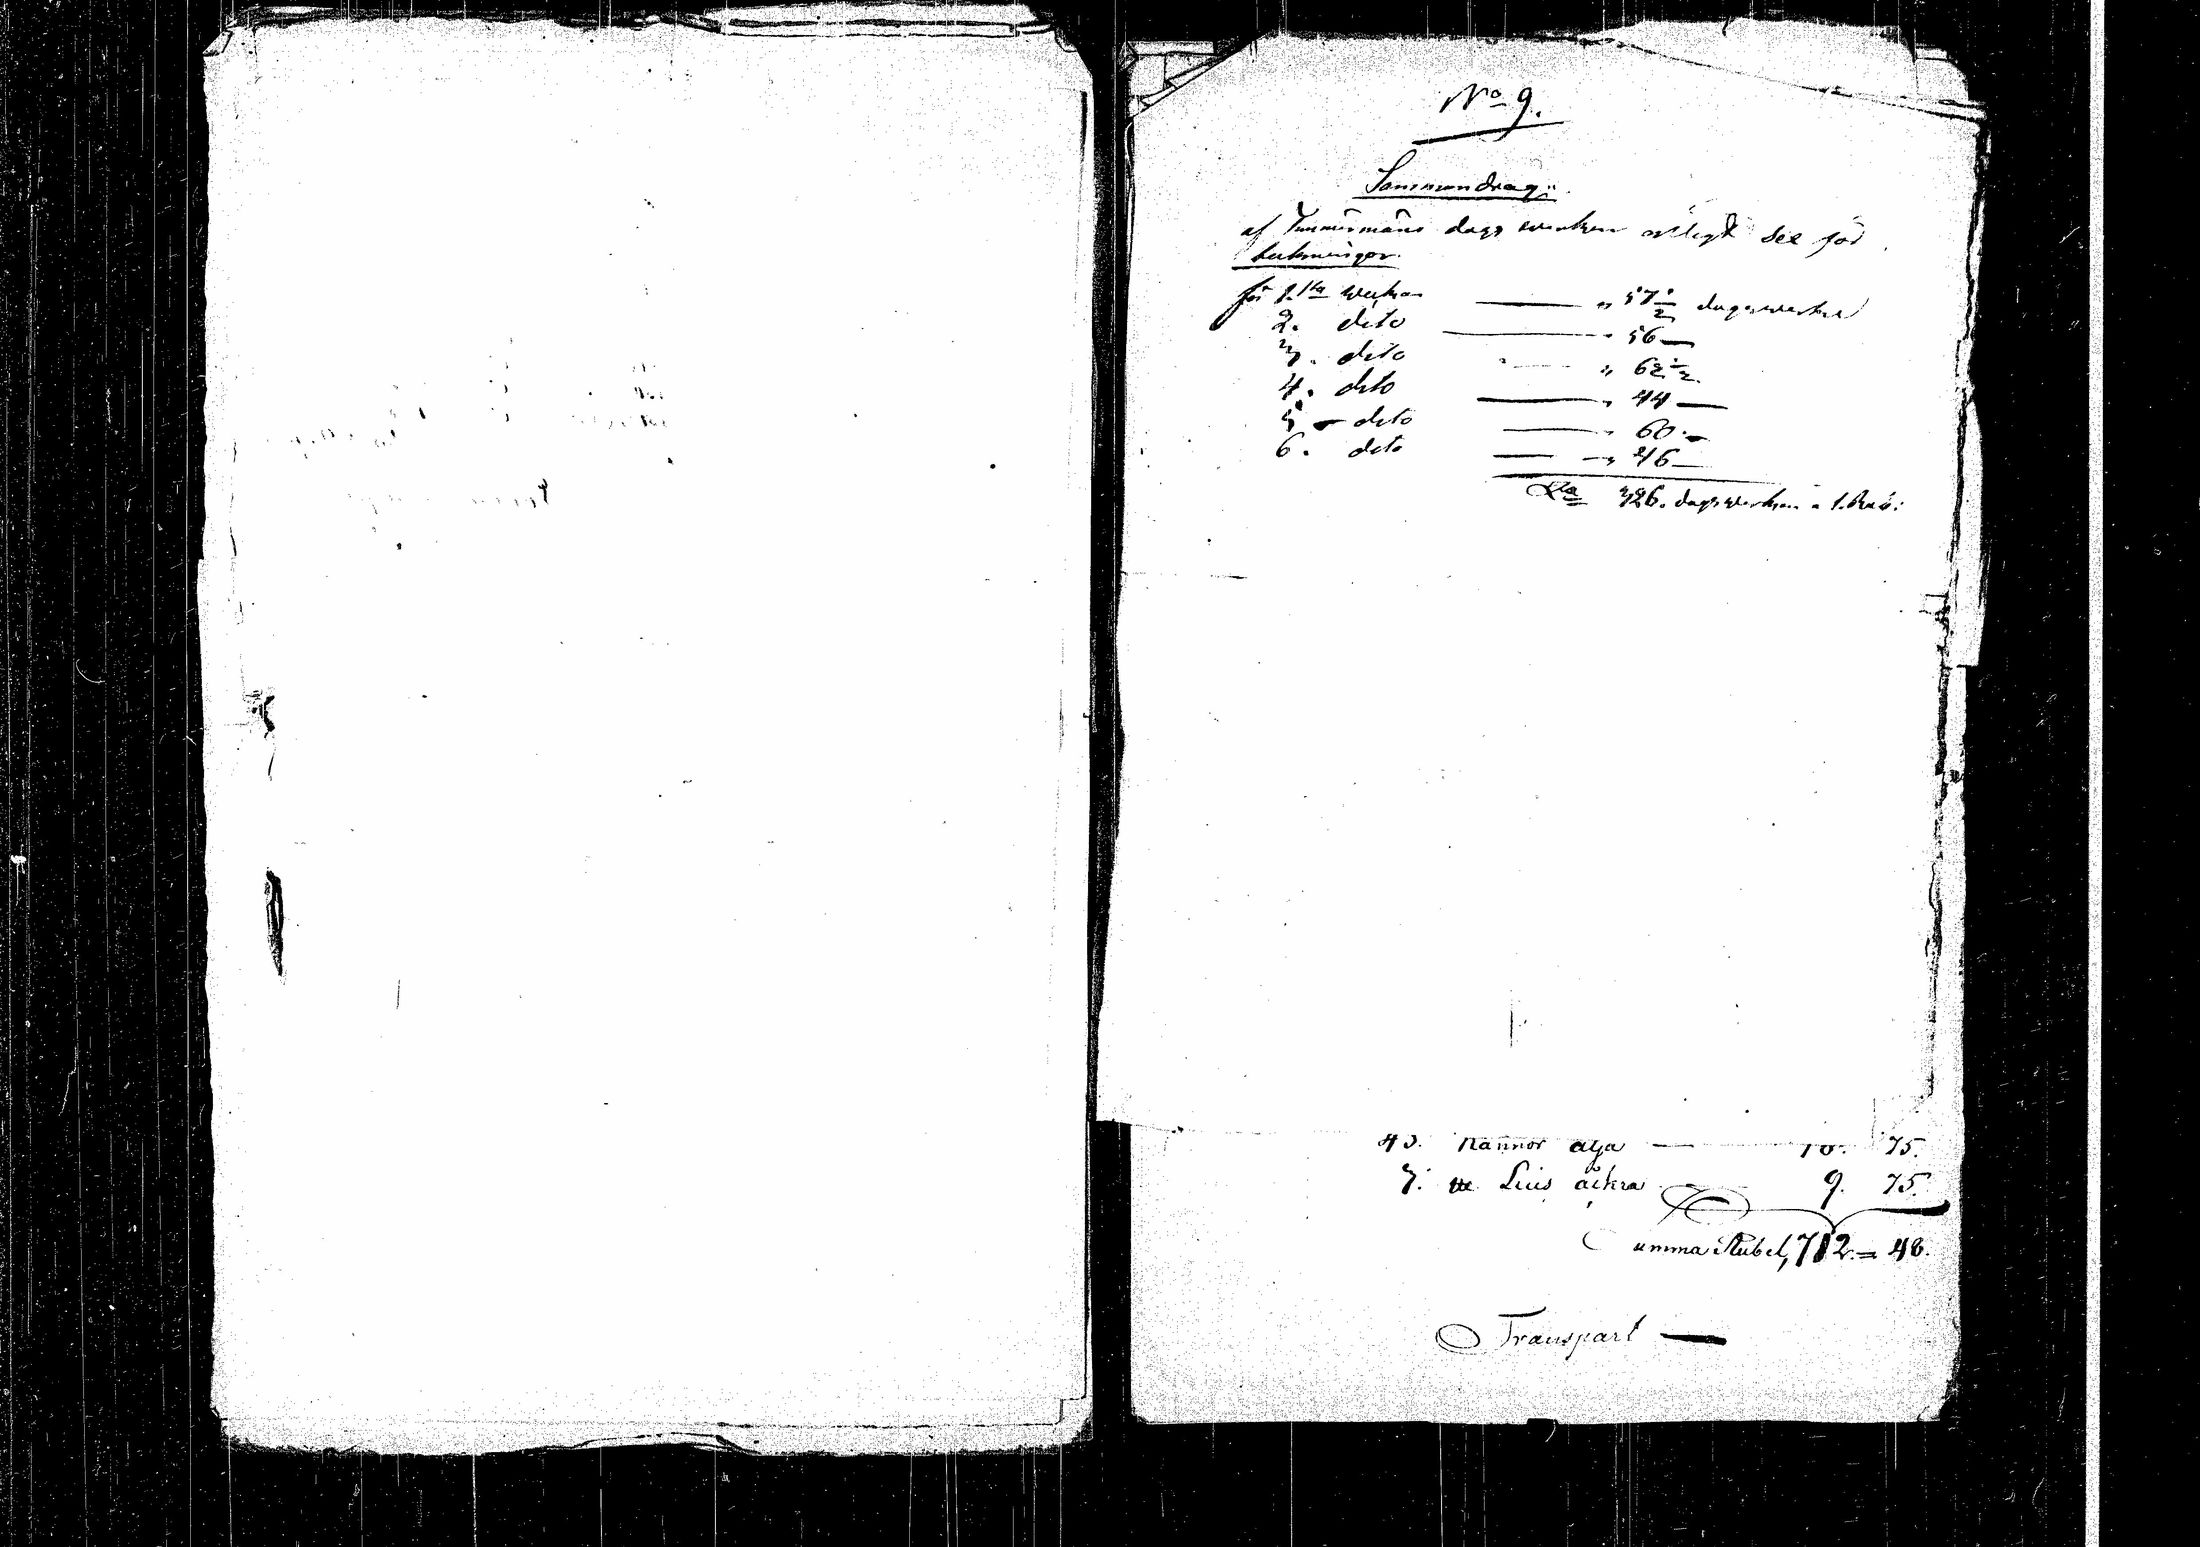 No 9.
Sammandrag
af Timmermäns dagswerken enligt see för
tekningar.
för 1.sta wekan — " 57 1/2 dagswerken
2. dito — " 56 —
3. dito — " 62 1/2
4. dito — " 44 —
5 - dito — " 60 . —
6. dito — " 46 —
S:a 326. dagswerken a 1. Rub:
40. Kannor olja — 10. 75.
7. Lius 9. 75.
Summa Rubel, 712. = 48.
Transport —